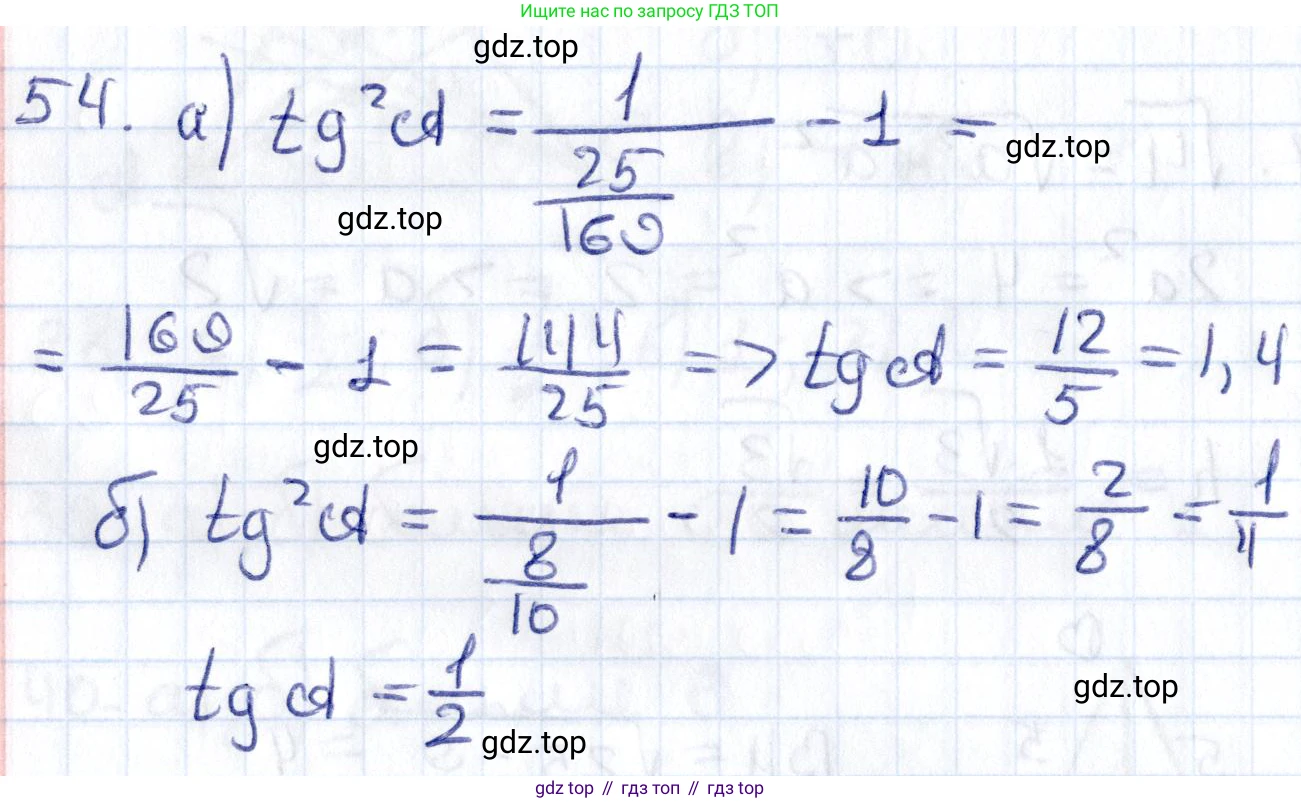 Ищите нас по запросу ГДЗ ТОП
gdz.top
54. а) tg²α = 1/(25/169) - 1 =
gdz.top
gdz.top
= 169/25 - 1 = 144/25 => tg α = 12/5 = 1,4
gdz.top
б) tg²α = 1/(8/10) - 1 = 10/8 - 1 = 2/8 = 1/4
tg α = 1/2
gdz.top
gdz.top
gdz top // гдз топ // gdz top